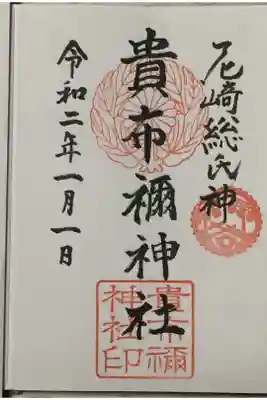 尼崎総氏神
貴布禰神社
貴布禰
神社印
令和二年一月一日